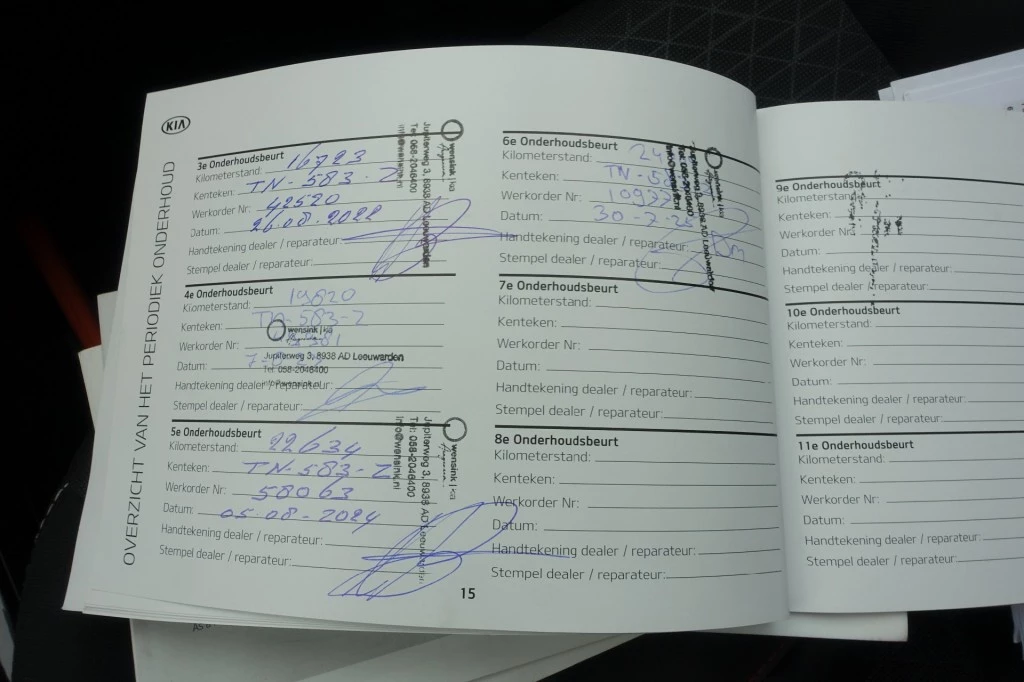 KIA
OVERZICHT VAN HET PERIODIEK ONDERHOUD
3e Onderhoudsbeurt
Kilometerstand: 16723
Kenteken: TN-583-Z
Werkorder Nr: 42520
Datum: 26.08.2022
Handtekening dealer / reparateur:
Stempel dealer / reparateur:
wensink | kia
Jupiterweg 3, 8938 AD Leeuwarden
Tel: 058-2046400
info@wensink.nl
4e Onderhoudsbeurt
Kilometerstand: 19820
Kenteken: TN-583-Z
Werkorder Nr:
Datum:
Handtekening dealer / reparateur:
Stempel dealer / reparateur:
wensink | kia
Jupiterweg 3, 8938 AD Leeuwarden
Tel: 058-2046400
info@wensink.nl
5e Onderhoudsbeurt
Kilometerstand: 22634
Kenteken: TN-583-Z
Werkorder Nr: 58063
Datum: 05-08-2024
Handtekening dealer / reparateur:
Stempel dealer / reparateur:
wensink | kia
Jupiterweg 3, 8938 AD Leeuwarden
Tel: 058-2046400
info@wensink.nl
15
6e Onderhoudsbeurt
Kilometerstand:
Kenteken:
Werkorder Nr:
Datum: 30-7-25
Handtekening dealer / reparateur:
Stempel dealer / reparateur:
wensink | kia
Jupiterweg 3, 8938 AD Leeuwarden
7e Onderhoudsbeurt
Kilometerstand:
Kenteken:
Werkorder Nr:
Datum:
Handtekening dealer / reparateur:
Stempel dealer / reparateur:
8e Onderhoudsbeurt
Kilometerstand:
Kenteken:
Werkorder Nr:
Datum:
Handtekening dealer / reparateur:
Stempel dealer / reparateur:
9e Onderhoudsbeurt
Kilometerstand:
Kenteken:
Werkorder Nr:
Datum:
Handtekening dealer / reparateur:
Stempel dealer / reparateur:
10e Onderhoudsbeurt
Kilometerstand:
Kenteken:
Werkorder Nr:
Datum:
Handtekening dealer / reparateur:
Stempel dealer / reparateur:
11e Onderhoudsbeurt
Kilometerstand:
Kenteken:
Werkorder Nr:
Datum:
Handtekening dealer / reparateur:
Stempel dealer / reparateur: